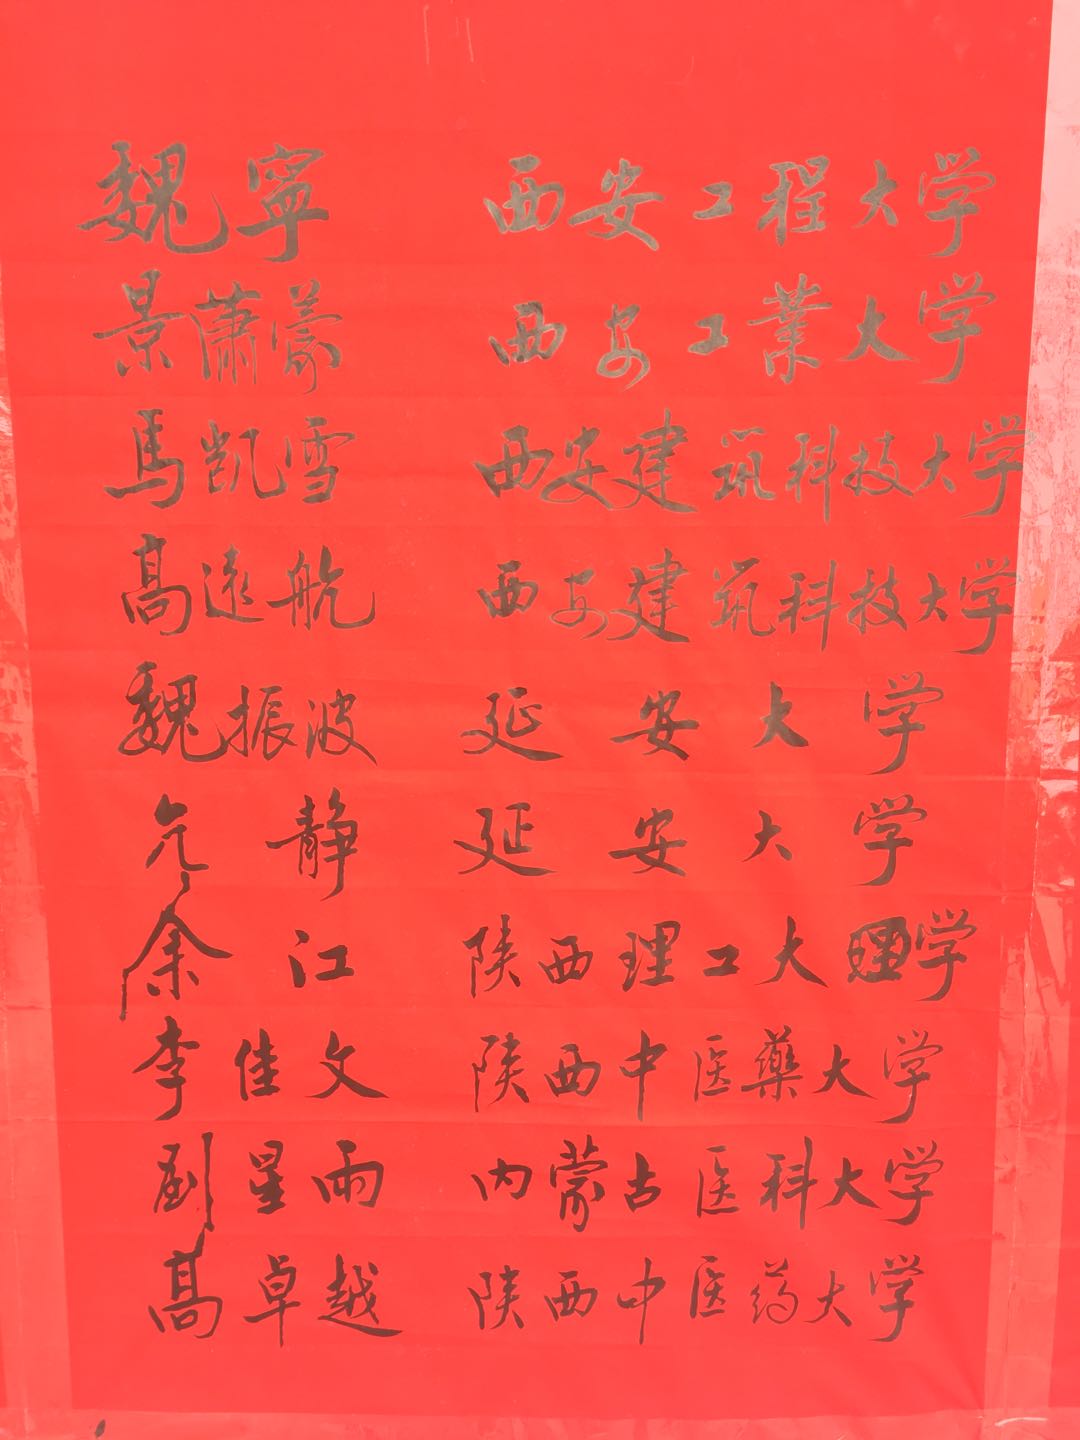 魏寧 西安工程大学
景潇蒙 西安工業大学
馬凯雪 西安建筑科技大学
高遠航 西安建筑科技大学
魏振波 延安大学
亢静 延安大学
余江 陕西理工大学
李佳文 陕西中医藥大学
刘星雨 内蒙古医科大学
高卓越 陕西中医药大学